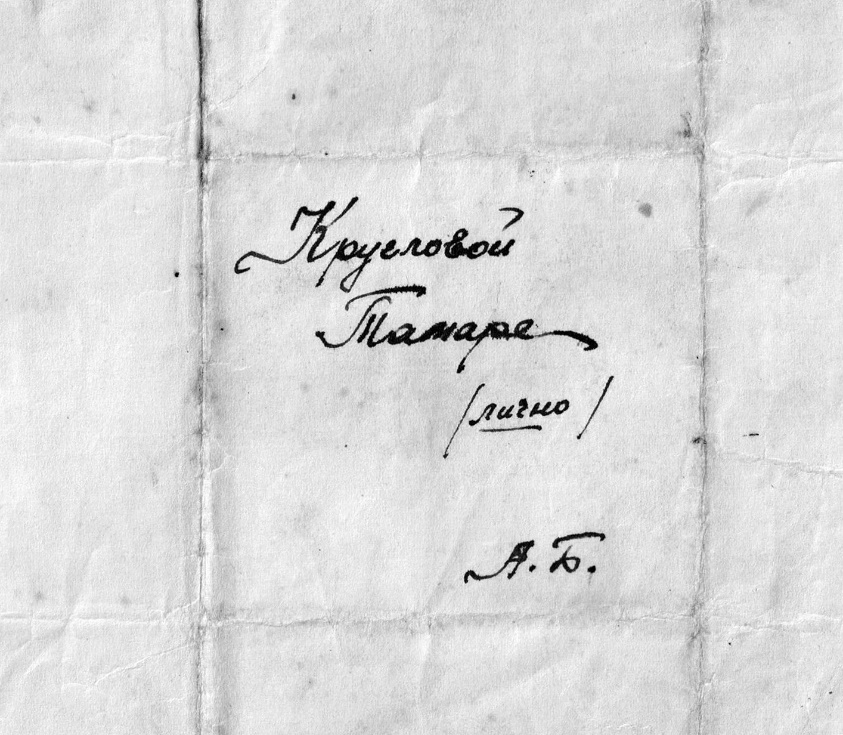 Кругловой
Тамаре
/лично/
А.Б.